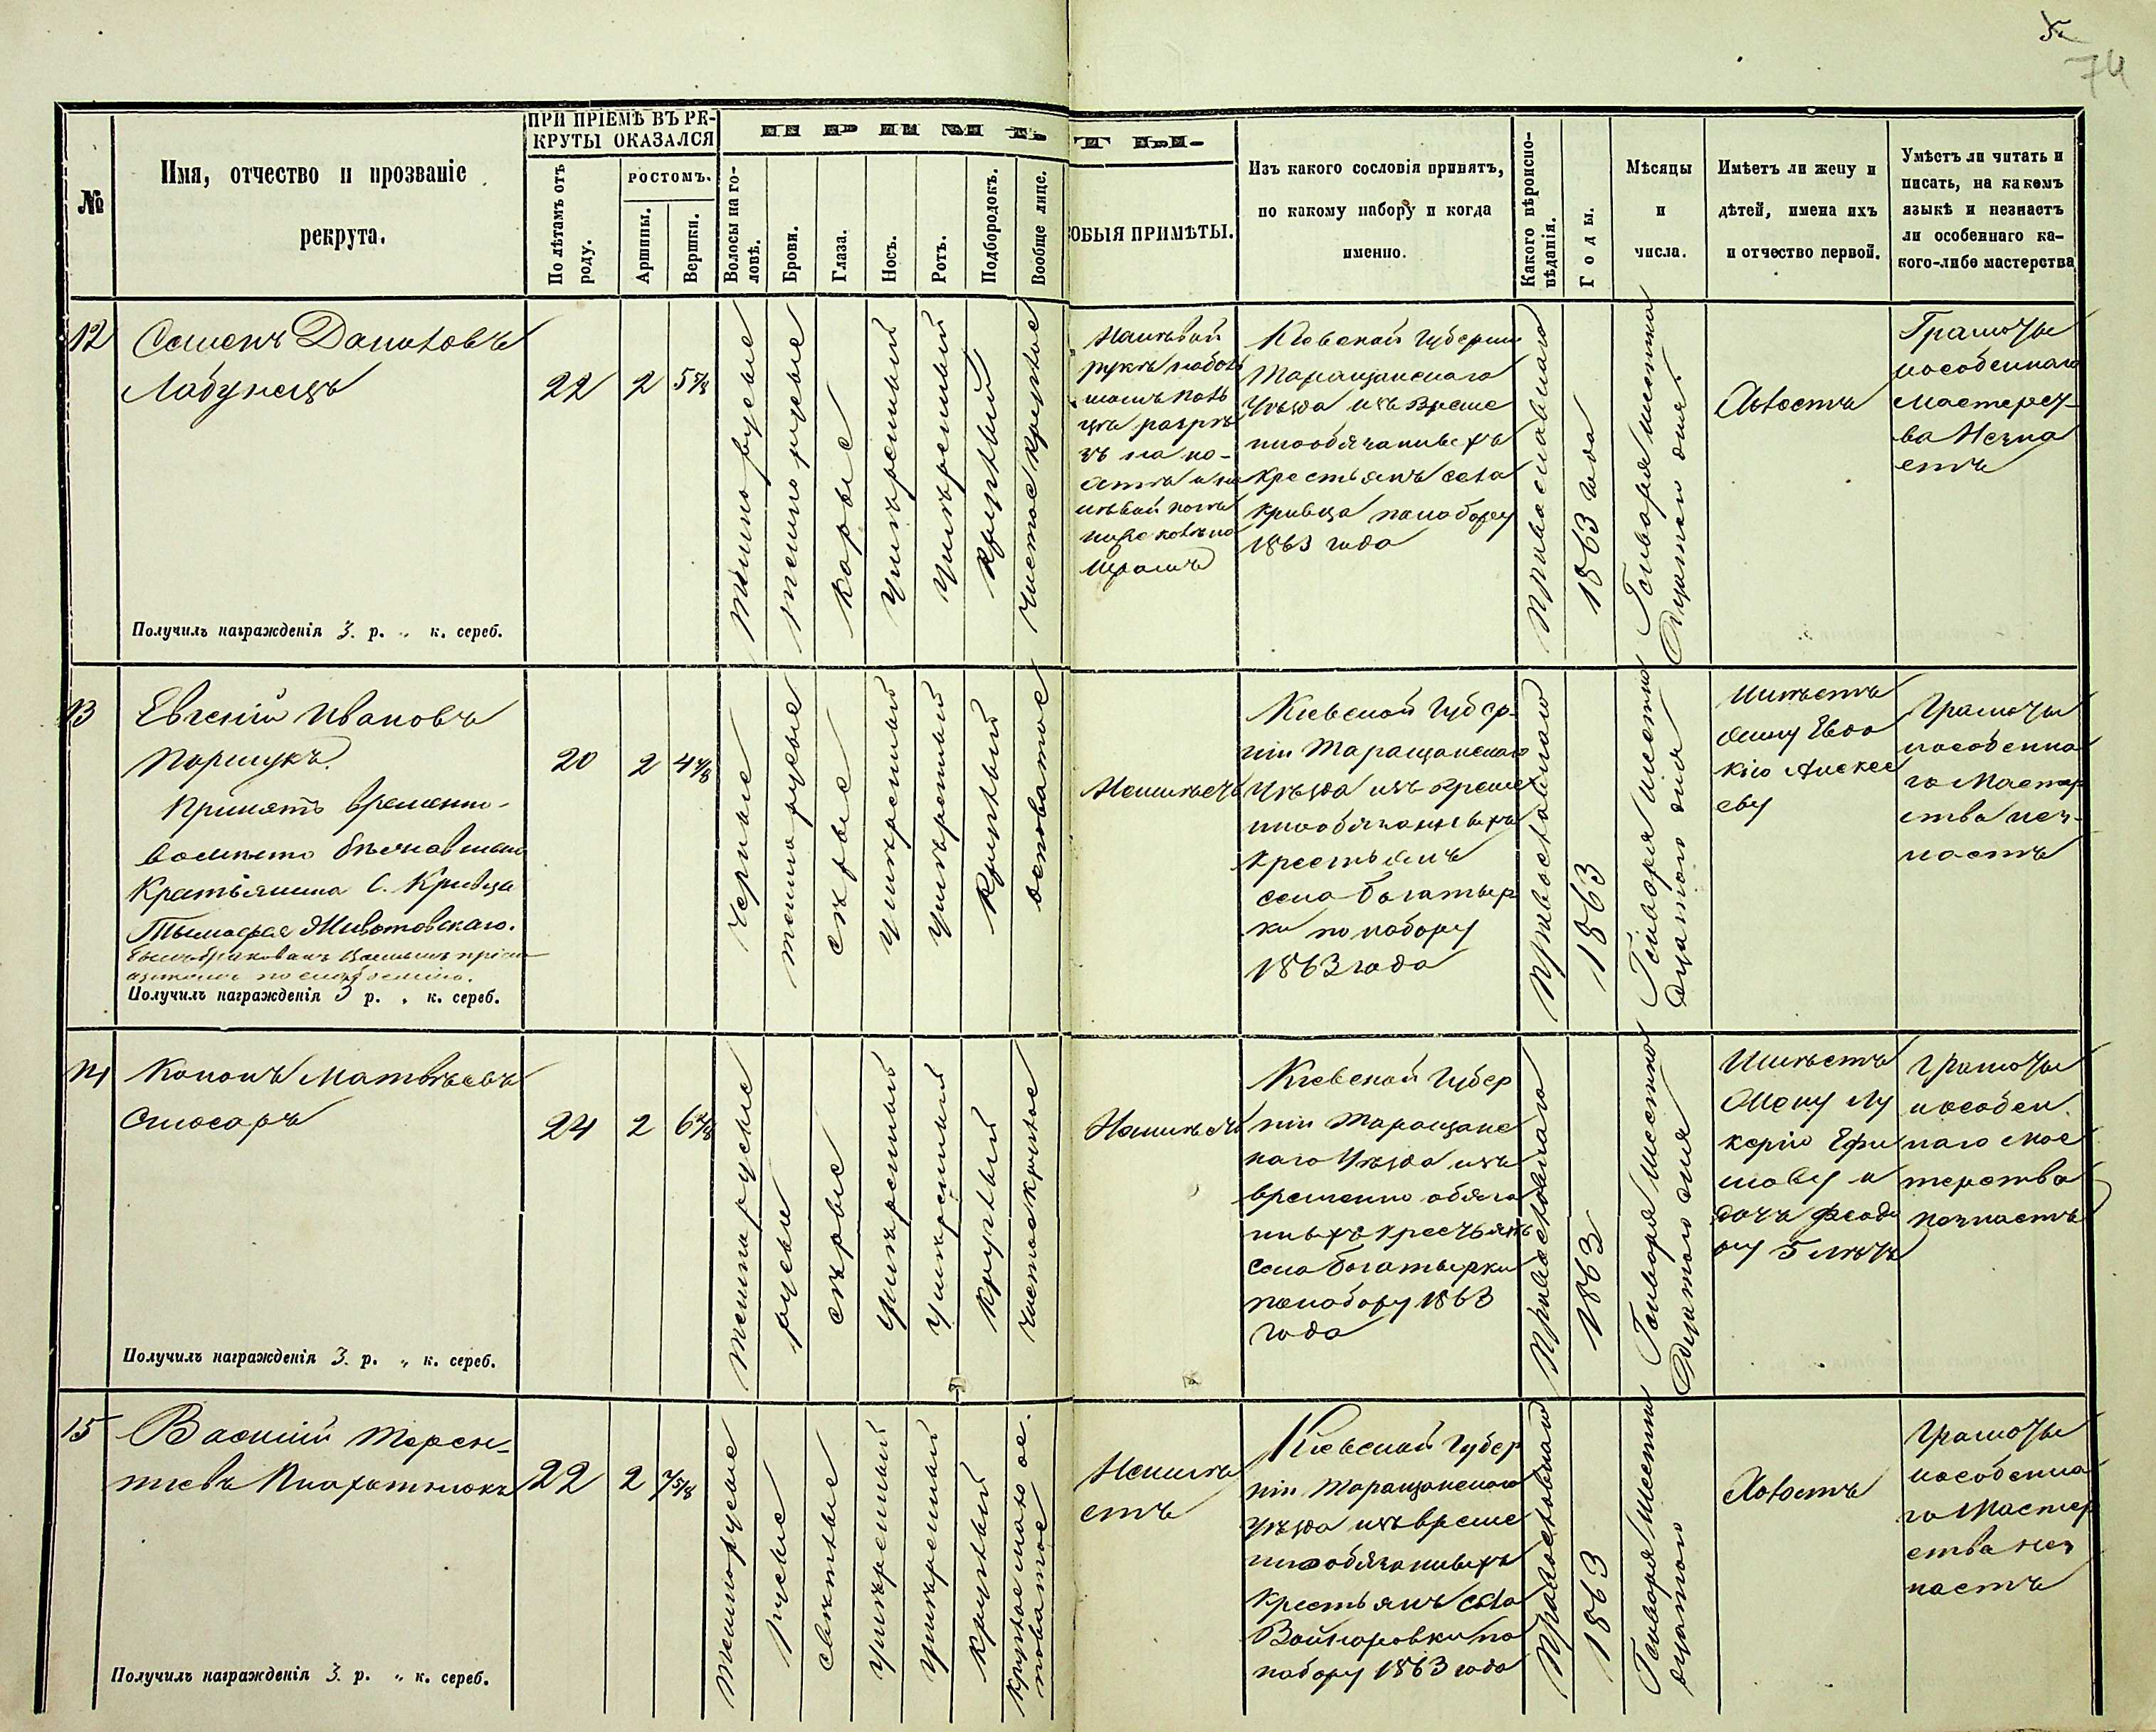 74
№
Имя, отчество и прозваніе
рекрута.
ПРИ ПРІЕМѢ ВЪ РЕ-
КРУТЫ ОКАЗАЛСЯ
По лѣтамъ отъ
роду.
РОСТОМЪ.
Аршины.
Вершки.
ПРИМѢТЫ.
Волосы на го-
ловѣ.
Брови.
Глаза.
Носъ.
Ротъ.
Подбородокъ.
Вообще лице.
ОБЫЯ ПРИМѢТЫ.
Изъ какого сословія принятъ,
по какому набору и когда
именно.
Какого вѣроиспо-
вѣданія.
Годы.
Мѣсяцы
и
числа.
Имѣетъ ли жену и
дѣтей, имена ихъ
и отчество первой.
Умѣетъ ли читать и
писать, на какомъ
языкѣ и незнаетъ
ли особеннаго ка-
кого-либо мастерства
12
Семенъ Даниловъ
Лабунецъ
22
2
5⅞
Темнорусые
темнорусые
карые
умѣренный
умѣренный
круглый
чистое круглое
На лѣвой
рукѣ
Кіевской Губерніи
Таращанскаго
Уѣзда изъ Време
ннообязанныхъ
крестьянъ села
Кривца по набору
1863 года
Православнаго
1863 года
Генваря шестна
дцатого дня
Холостъ
Грамоты
и особеннаго
мастерст-
ва Незна
етъ
Получилъ награжденія 3. р. „ к. сереб.
13
Евгеній Ивановъ
Паршукъ.
Принятъ временно-
вместо бѣжавшаго
Крестьянина С. Кривца
Животовскаго.
20
2
4 4/8
Черные
темнорусые
сѣрые
умѣренный
умѣренный
круглый
осповатое
Неимѣетъ
Кіевской Губер-
ніи Таращанскаго
Уѣзда изъ време
ннообязанныхъ
крестьянъ
села Богатыр
ки по набору
1863 года
Православнаго
1863
Генваря шестна
дцатого дня
Имѣетъ
жену Евдо
кію Алексе
еву
Грамоты
и особенна
го Мастер
ства нез-
наетъ
Получилъ награжденія 3 р. „ к. сереб.
14
Кононъ Матвѣевъ
Слюсаръ
24
2
6 4/8
темнорусые
русые
сѣрые
умѣренный
умѣренный
круглый
чистое круглое
Неимѣетъ
Кіевской Губер
ніи Таращанс
каго Уѣзда изъ
временно обяза
нныхъ крестьянъ
села Богатырки
по набору 1863
года
Православнаго
1863
Генваря шестна
дцатого дня
Имѣетъ
Жену Лу
керію Ефи
мову и
дочь Феодо
ру 5 лѣтъ
Грамоты
и особен
наго мас
терства
незнаетъ
Получилъ награжденія 3. р. „ к. сереб.
15
Василій Терен-
тіевъ
22
2
7⅝
темнорусые
русые
свѣтлые
умѣренный
умѣренный
круглый
круглое мало ос.
поватое
Неимѣ
етъ
Кіевской Губер
ніи Таращанскаго
Уѣзда изъ време
ннообязанныхъ
крестьянъ села
Войнаровки по
набору 1863 года
Православнаго
1863
Генваря Шестна
дцатого
Холостъ
Грамоты
и особенна
го Мастер
ства нез
наетъ
Получилъ награжденія 3. р. „ к. сереб.